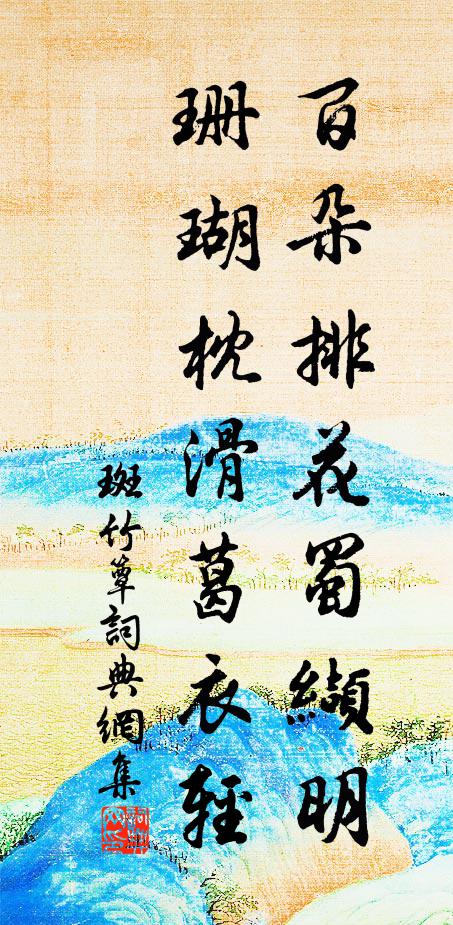 百朵排花蜀纈明
珊瑚枕滑葛衣輕
斑竹簟詞典網集